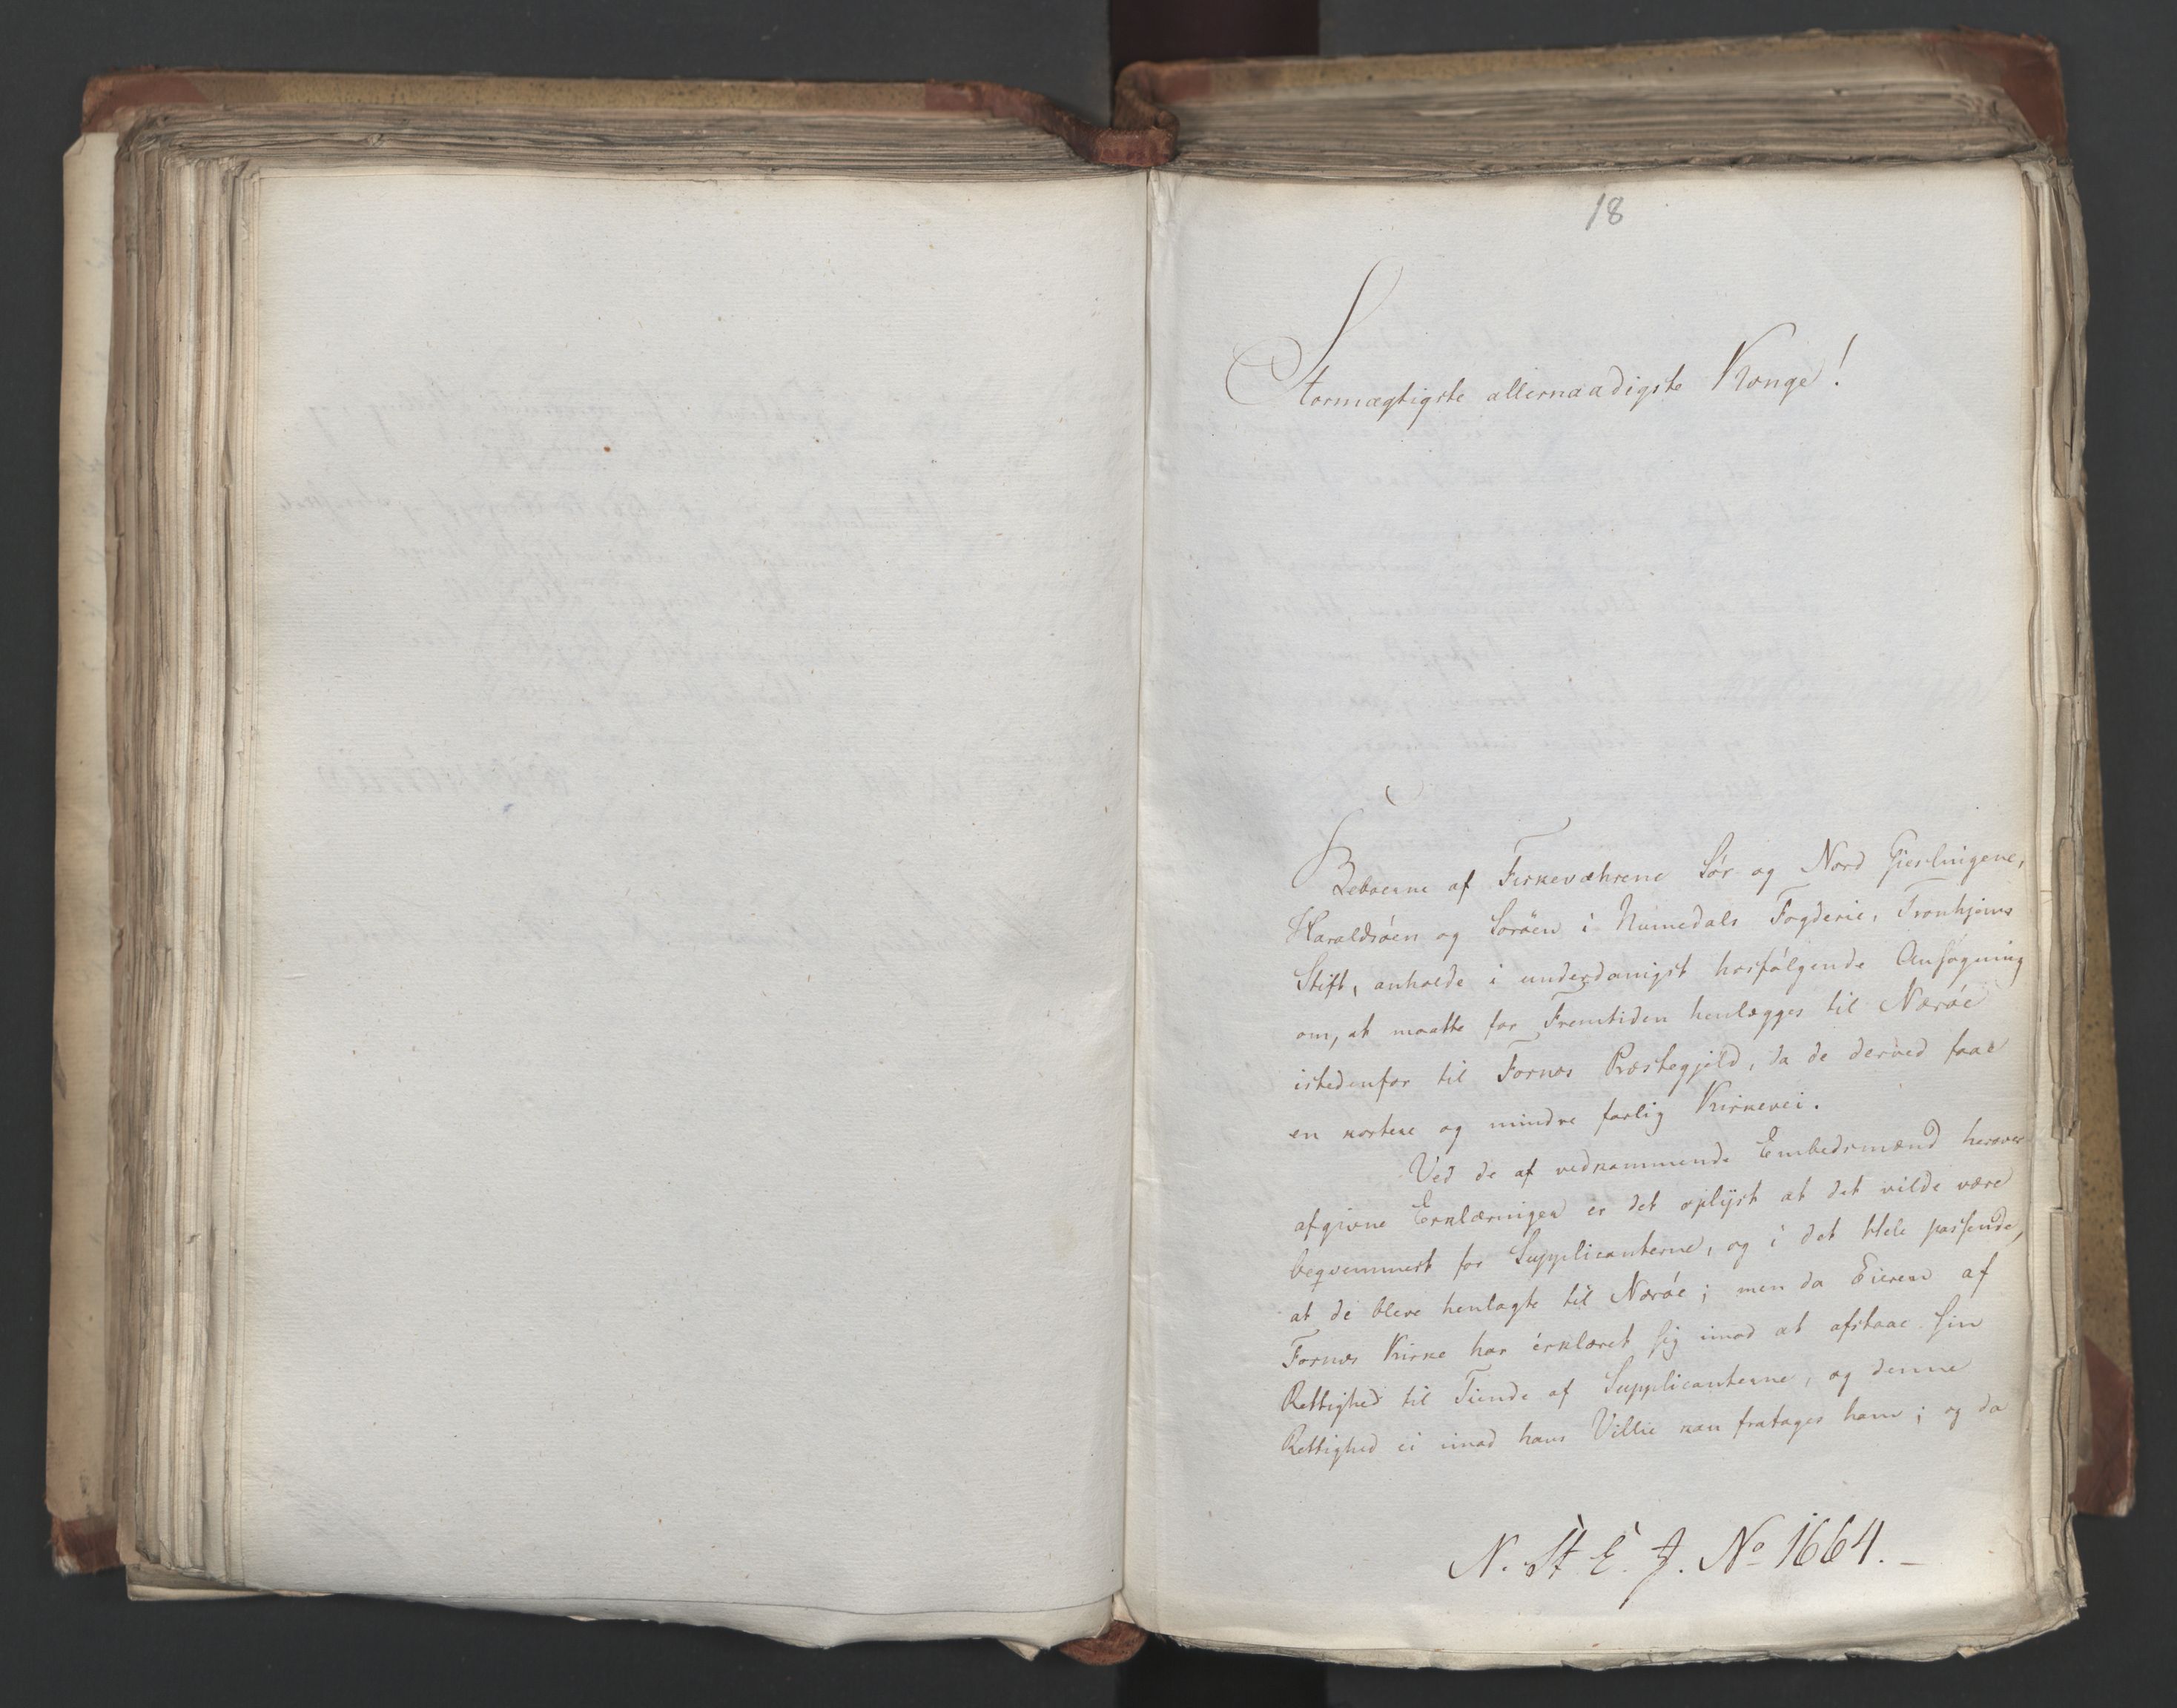 18
Stormægtigste allernaadigste Konge!
Beboerne af Fiskeværene Sør og Nord Gjeslingene,
Haraldsöen og Soröen i Numedals Fogderie, Tronhjems
Stift, anholde i underdanigst hosfölgende Ansøgning
om, at maatte for Fremtiden henlægges til Næröe
istedenfor til Fosnæs Præstegjeld, da de derved faae
en kortere og mindre farlig Kirkevei.
Ved de af vedkommende Embedsmænd herover
afgivne Erklæringer er det oplyst at det vilde være
beqvemmest for Supplicanterne, og i det Hele passende,
at de bleve henlagte til Næröe; men da Eieren af
Fosnæs Kirke har erklæret sig imod at afstaae sin
Rettighed til Tiende af Supplicanterne, og denne
Rettighed ei imod hans Villie kan fratages ham; og da
N. St E. J. No 1664.